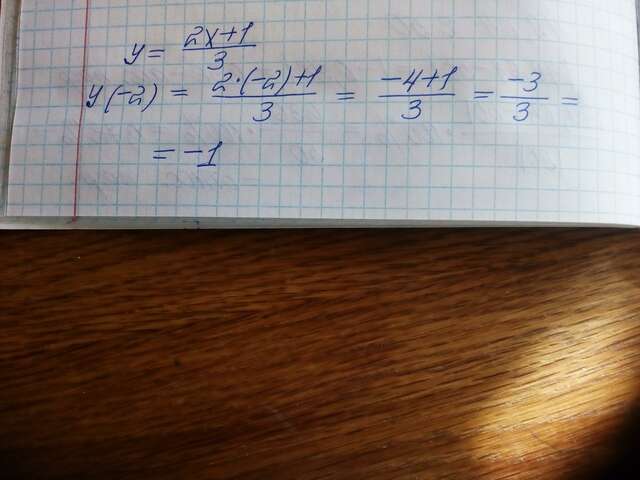 y = \frac{2x+1}{3}
y(-2) = \frac{2·(-2)+1}{3} = \frac{-4+1}{3} = \frac{-3}{3} =
= -1